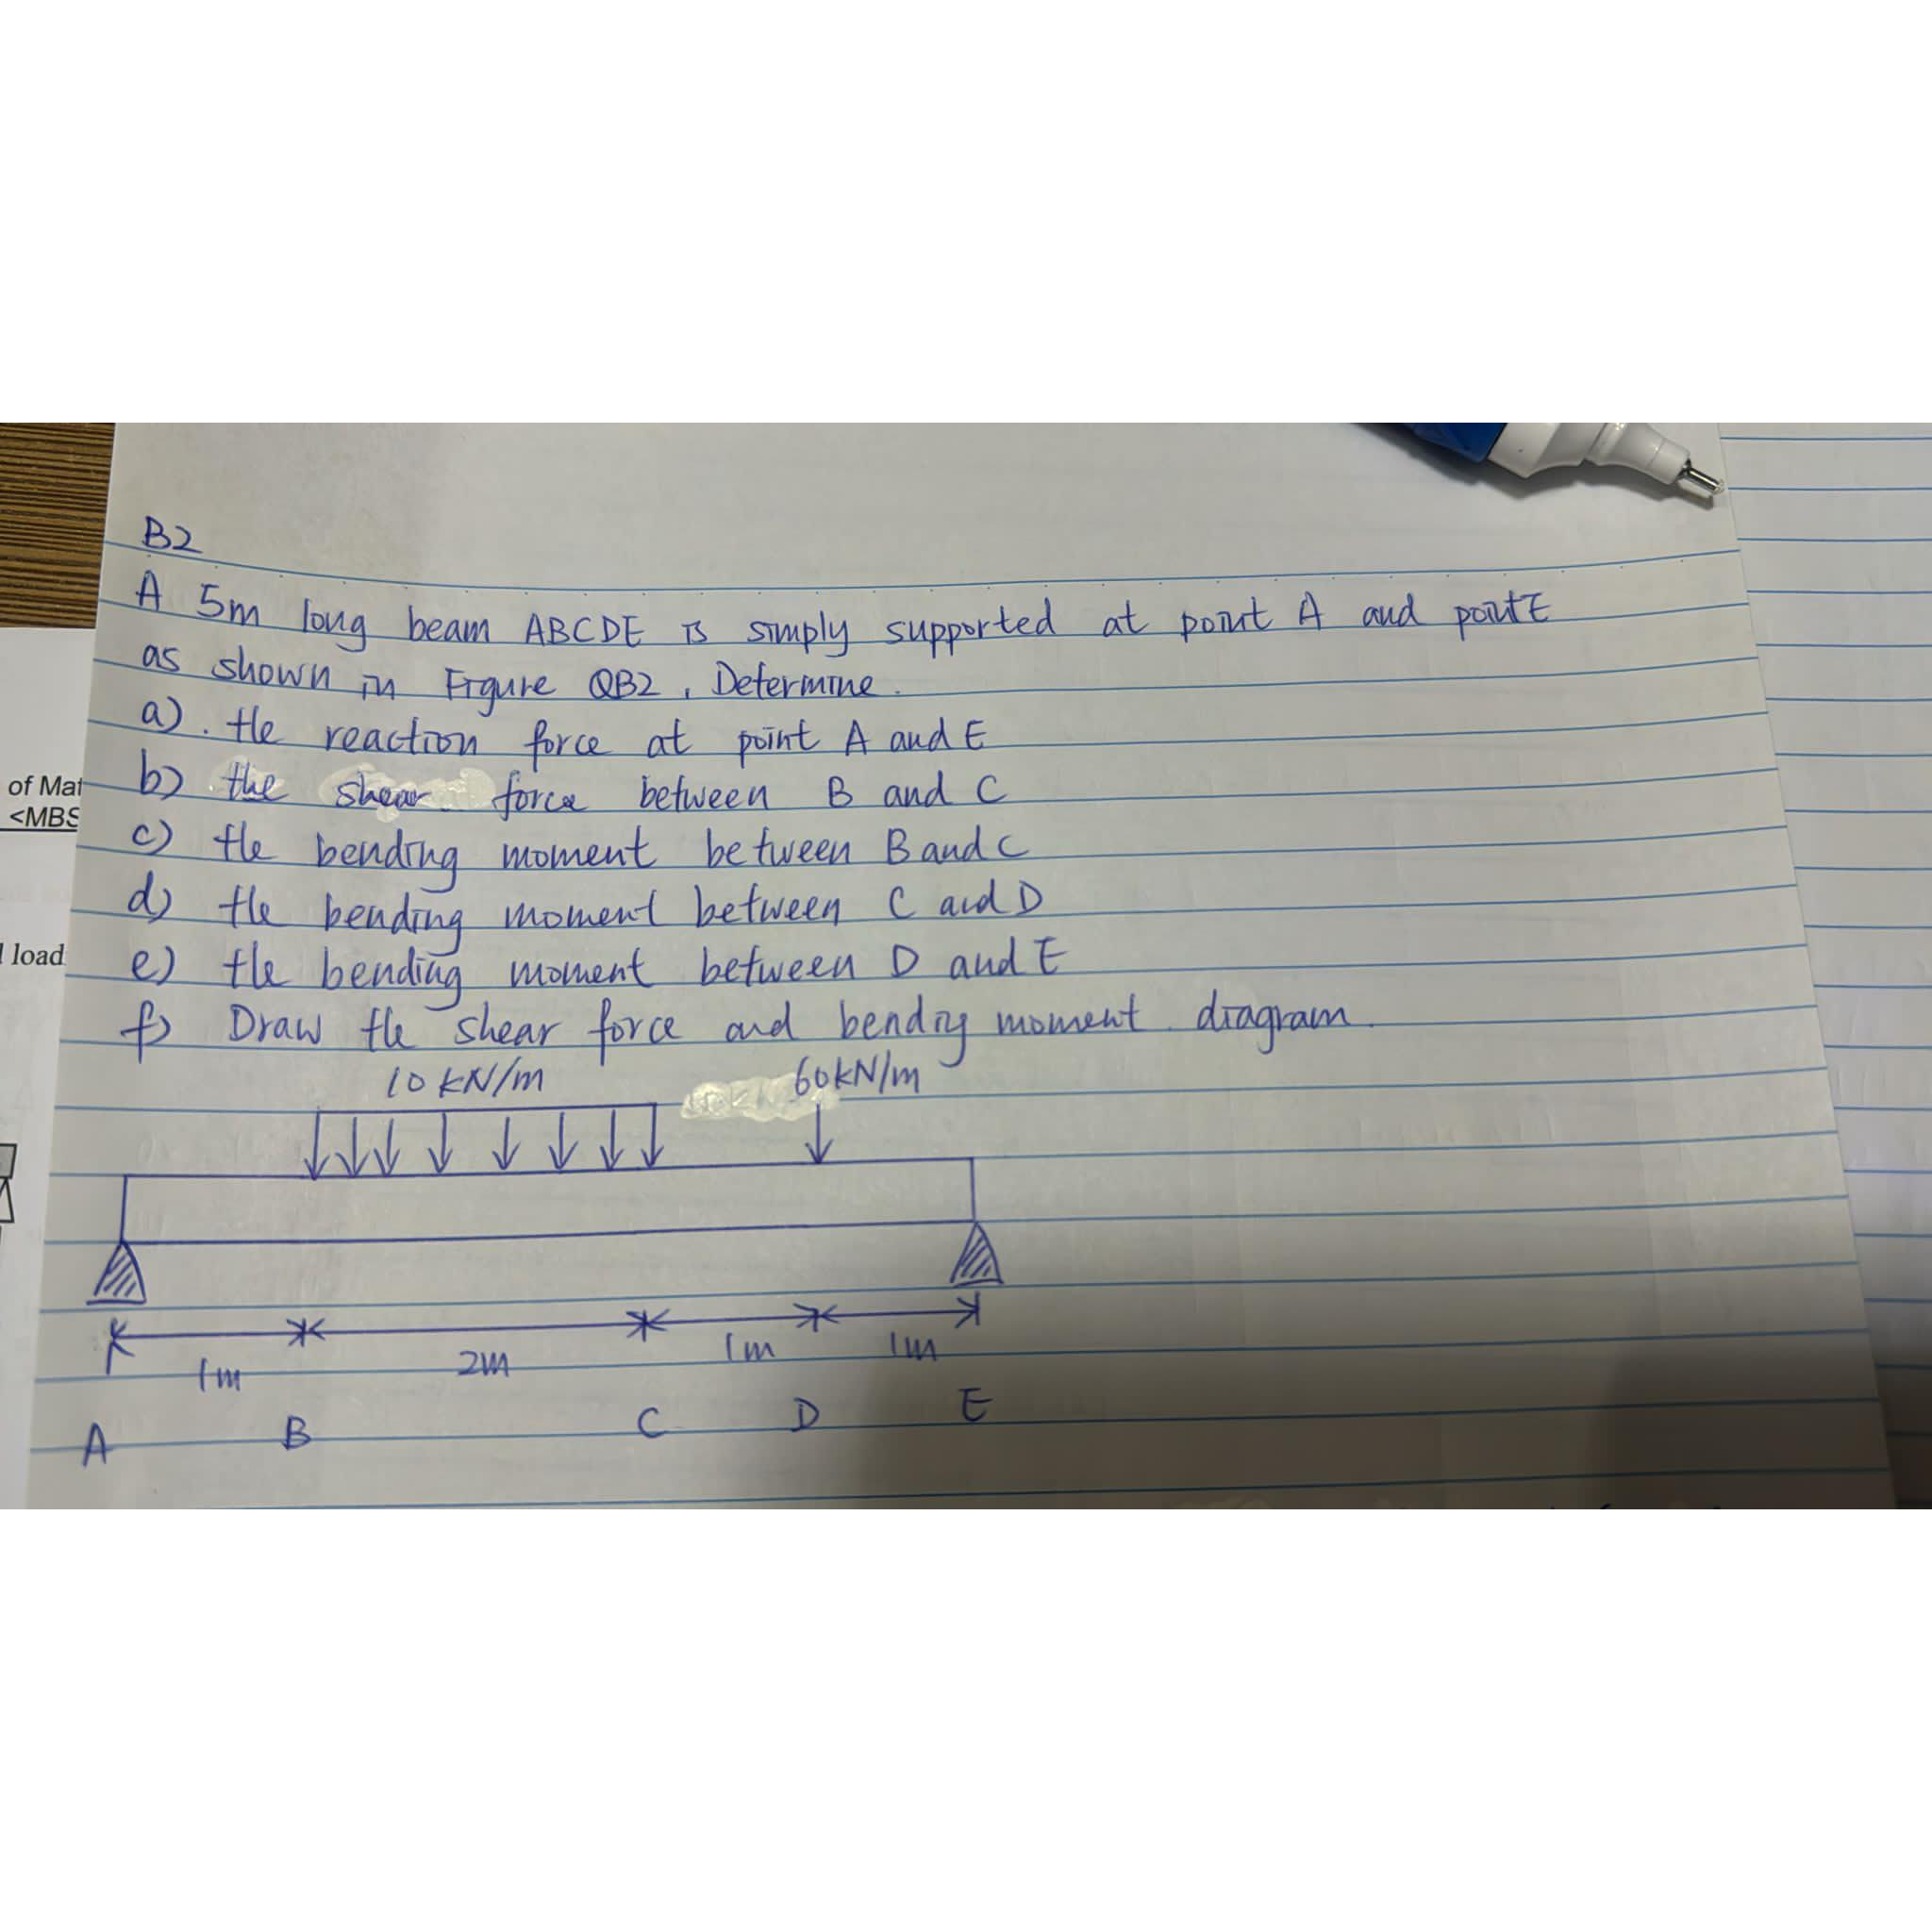 B2
A 5m long beam ABCDE is simply supported at point A and point E
as shown in Figure QB2. Determine.
a). the reaction force at point A and E
b) the shear force between B and C
of Mat
<MBS
c) the bending moment between B and C
d) the bending moment between C and D
load
e) the bending moment between D and E
f) Draw the shear force and bending moment diagram.
10 kN/m 60kN/m
1m 2m 1m 1m
A B C D E